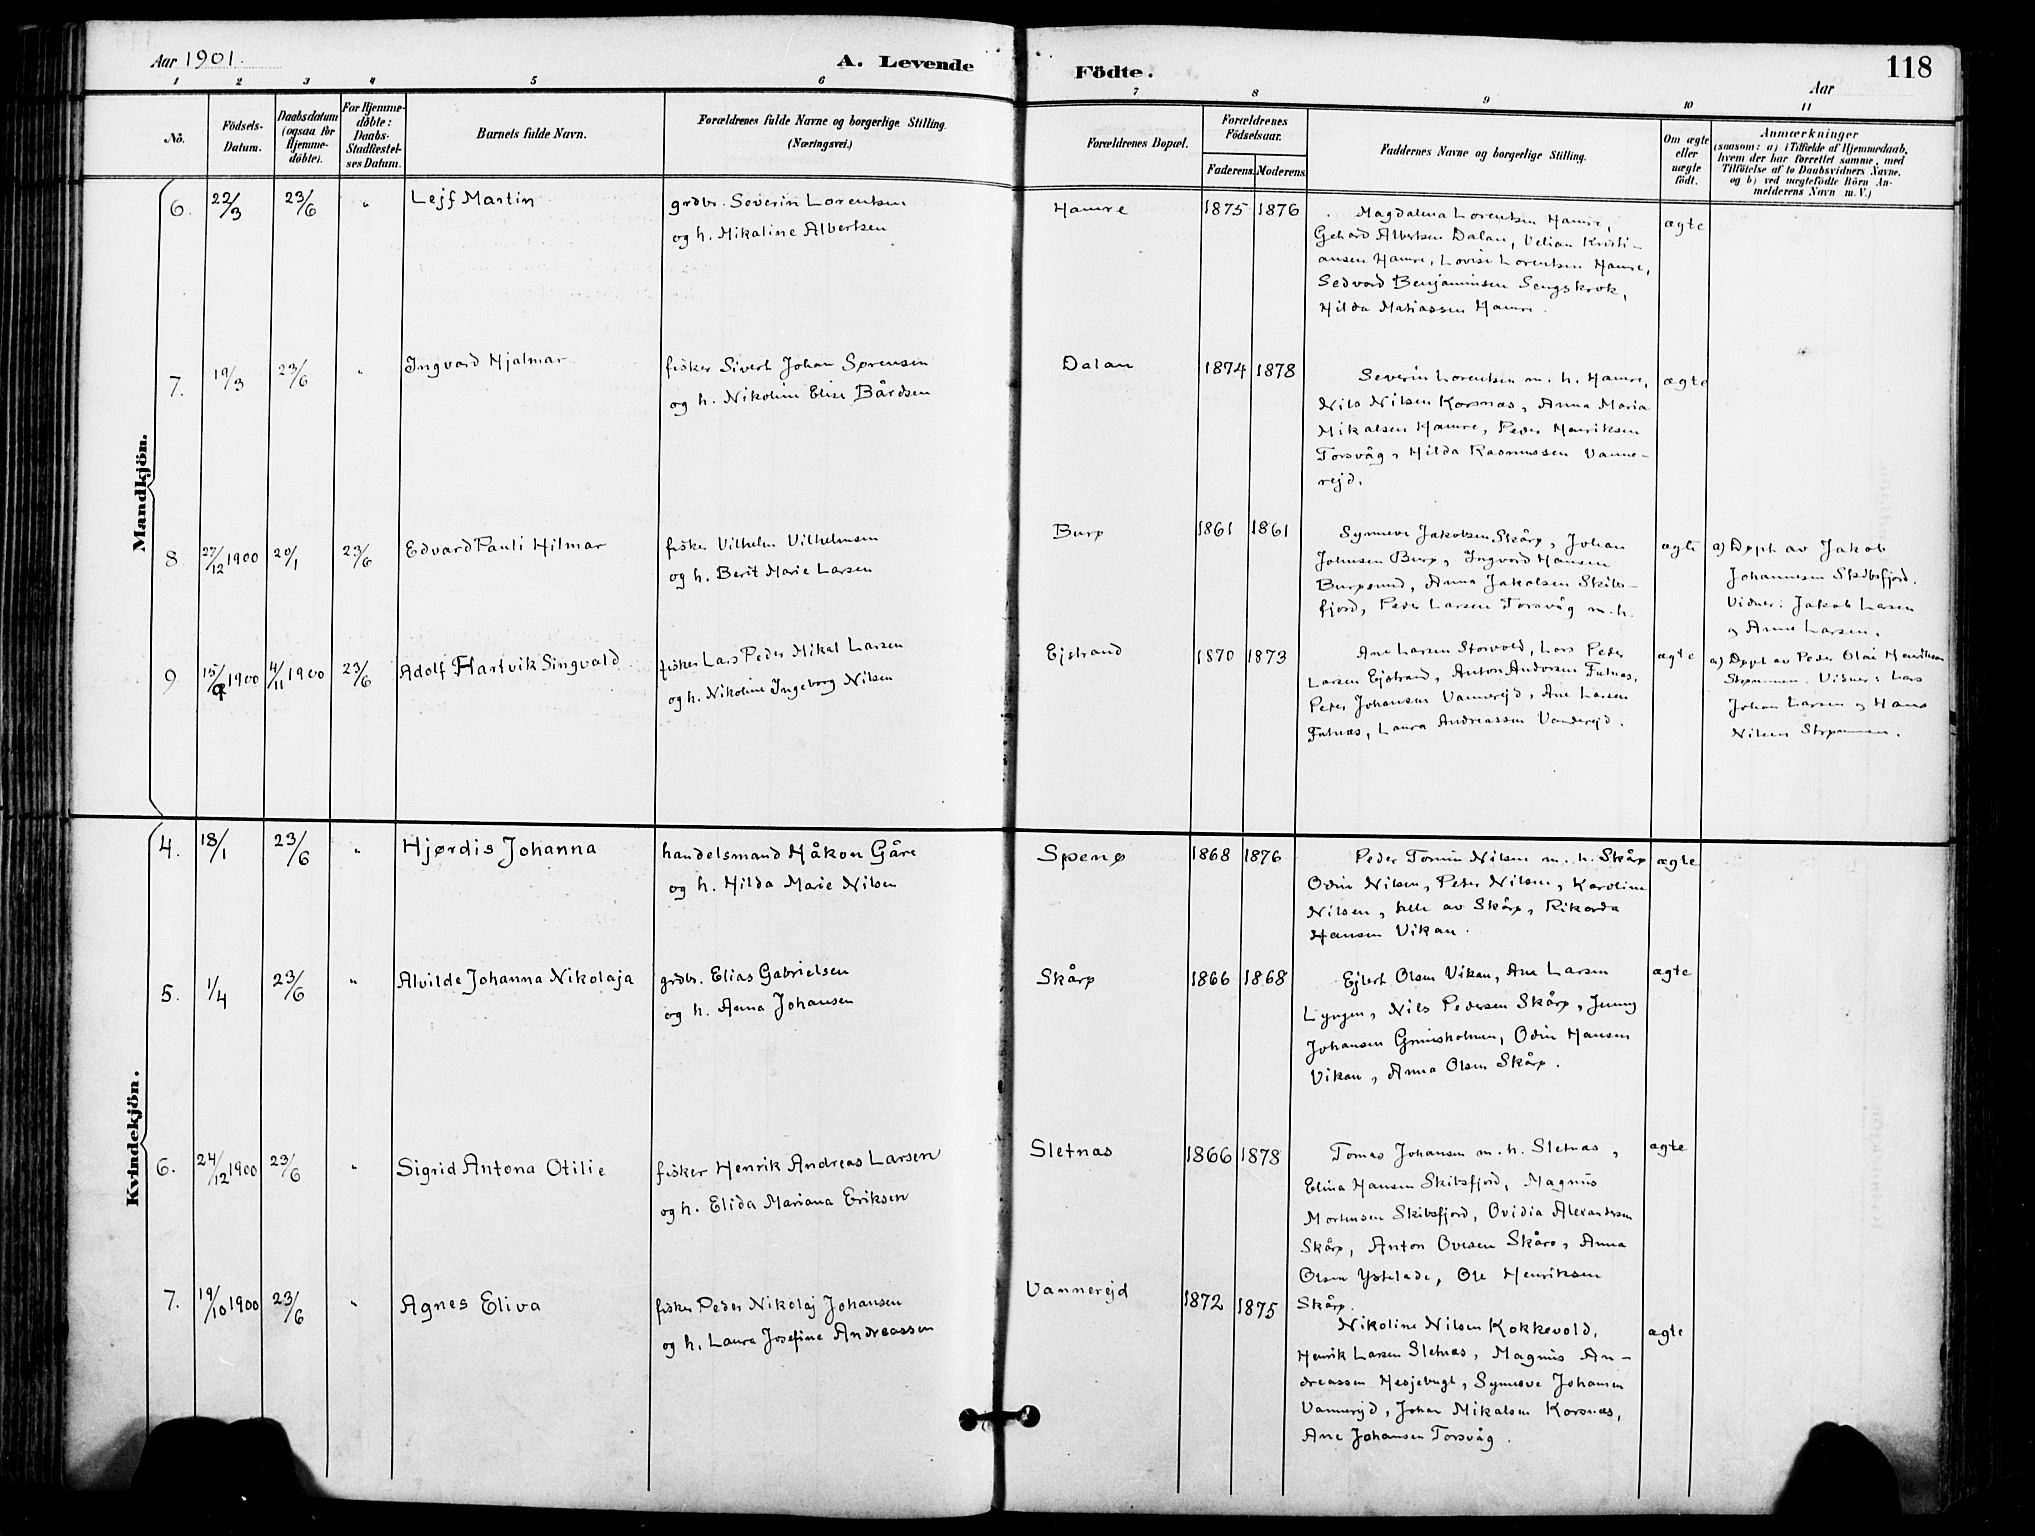 Aar 1901.
A. Levende Födte.
Aar
118
1 2 3 4 5 6 7 8 9 10 11
No.
Födsels-Datum.
Daabsdatum (ogsaa for Hjemme-döbte).
For Hjemme-döbte: Daabs-Stadfæstel-ses Datum.
Barnets fulde Navn.
Forældrenes fulde Navne og borgerlige Stilling. (Næringsvei.)
Forældrenes Bopæl.
Forældrenes Födselsaar.
Faderens. Moderens.
Faddernes Navne og borgerlige Stilling.
Om ægte eller uægte födt.
Anmærkninger
(saasom: a) i Tilfælde af Hjemmedaab,
hvem der har forrettet samme, med
Tilföielse af to Daabsvidners Navne.
og b) ved uægtefödte Börn An-
melderens Navn m.V.)
Mandkjön.
6. 22/3 23/6 " Lejf Martin
grdbr. Severin Lorentsen
og h. Mikaline Albertsen
Hamre 1875 1876
Magdalena Lorentsen Hamre,
Gehard Albertsen Dalan, Velian Kristi-
ansen Hamre, Lovise Lorentsen Hamre,
Sedvard Benjaminsen Sengskrok,
Hilda Matiassen Hamre.
ægte
7. 19/3 23/6 " Ingvard Hjalmar
fisker Sivert Johan Sørensen
og h. Nikoline Elise Bårdsen
Dalan 1874 1878
Severin Lorentsen m. h. Hamre,
Nils Nilsen Korsnæs, Anna Maria
Mikalsen Hamre, Peder Henriksen
Torsvåg, Hilda Rasmussen Vanne-
rejd.
ægte
8. 27/12 1900 20/1 23/6 Edvard Pauli Hilmar
fisker Vilhelm Vilhelmsen
og h. Berit Marie Larsen
Burø 1861 1861
Synneve Jakobsen Skårø, Johan
Johnsen Burø, Ingvard Hansen
Burøsund, Anna Jakobsen Skibs-
fjord, Peder Larsen Torsvåg m. h.
ægte
a) Døpt av Jakob
Johannesen Skibsfjord.
Vidner: Jakob Larsen
og Anne Larsen.
9 15/9 1900 4/11 1900 23/6 Adolf Hartvik Singvald
fisker Lars Peder Mikal Larsen
og h. Nikoline Ingeborg Nilsen
Ejstrand 1870 1873
Ane Larsen Storvold, Lars Peder
Larsen Ejstrand, Anton Andersen Futnæs,
Peder Johansen Vannerejd, Ane Larsen
Futnæs, Laura Andreassen Vannerejd.
ægte
a) Døpt av Peder Olai Henriksen
Strømmen. Vidner: Lars
Johan Larsen og Hans
Nilsen Strømmen.
Kvindekjön.
4. 18/1 23/6 " Hjørdis Johanna
handelsmand Håkon Gåre
og h. Hilda Marie Nilsen
Spenø 1868 1876
Peder Tomin Nilsen m. h. Skårø
Odin Nilsen, Peter Nilsen, Karoline
Nilsen, alle av Skårø, Rikarda
Hansen Vikan.
ægte
5. 1/4 23/6 " Alvilde Johanna Nikolaja
grdbr. Elias Gabrielsen
og h. Anna Johansen
Skårø 1866 1868
Ejlert Olsen Vikan, Ane Larsen
Lyngen, Nils Pedersen Skårø, Jenny
Johansen Grimsholmen, Odin Hansen
Vikan, Anna Olsen Skårø.
ægte
6. 24/12 1900 23/6 " Sigrid Antona Otilie
fisker Henrik Andreas Larsen
og h. Elida Mariana Eriksen
Sletnæs 1866 1878
Tomas Johansen m. h. Sletnæs,
Elina Hansen Skibsfjord, Magnus
Mortensen Skibsfjord, Ovidia Alexandersen
Skårø, Anton Ovesen Skårø, Anna
Olsen Ystelade, Ole Henriksen
Skårø.
ægte
7. 19/10 1900 23/6 " Agnes Eliva
fisker Peder Nikolaj Johansen
og h. Laura Josefine Andreassen
Vannerejd 1872 1875
Nikoline Nilsen Kokkevold,
Henrik Larsen Sletnæs, Magnus An-
dreassen Hesjebugt, Synneve Johansen
Vannerejd, Johan Mikalsen Korsnæs,
Ane Johansen Torsvåg.
ægte